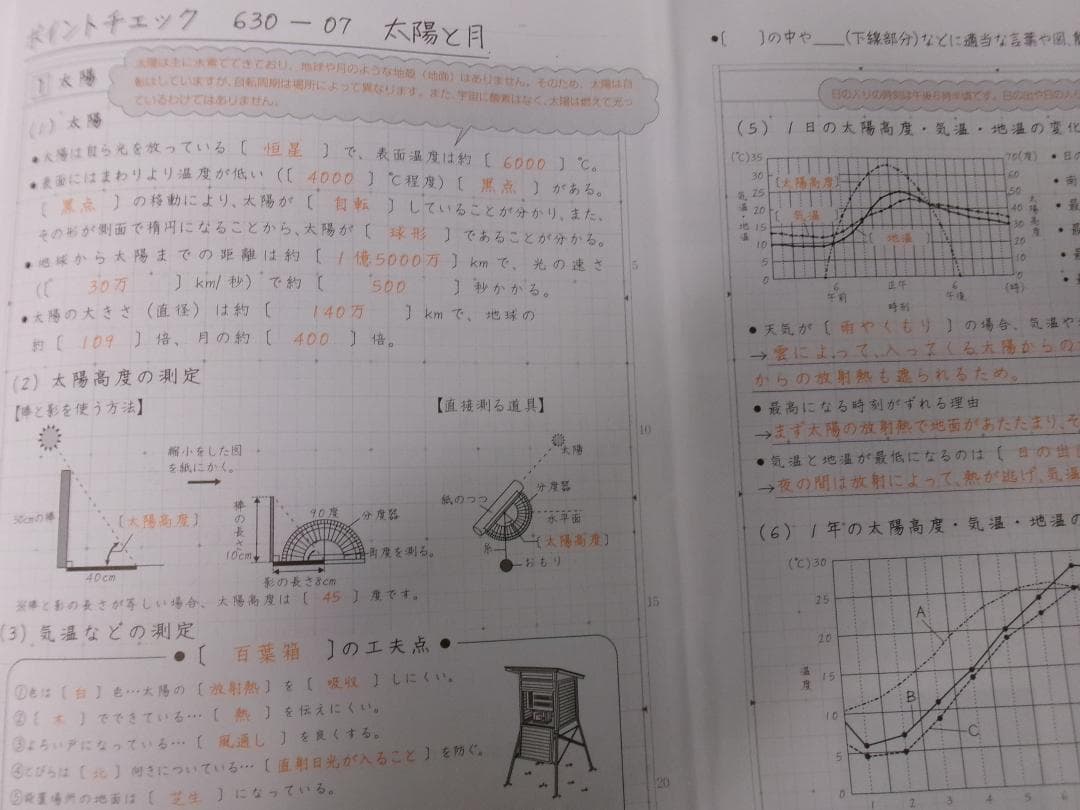 ポイントチェック 630－07 太陽と月
1 太陽
太陽は主に水素でできており、地球や月のような地殻(地面)はありません。そのため、太陽は自
転はしていますが、自転周期は場所によって異なります。また、宇宙に酸素はなく、太陽は燃えて光っ
ているわけではありません。
(1) 太陽
●太陽は自ら光を放っている[恒星]で、表面温度は約[6000]℃。
●表面にはまわりより温度が低い([4000]℃程度)[黒点]がある。
[黒点]の移動により、太陽が[自転]していることが分かり、また、
その形が側面で楕円になることから、太陽が[球形]であることが分かる。
●地球から太陽までの距離は約[1億5000万]kmで、光の速さ
([30万]km/秒)で約[500]秒かかる。
●太陽の大きさ(直径)は約[140万]kmで、地球の
約[109]倍、月の約[400]倍。
(2) 太陽高度の測定
【棒と影を使う方法】
縮小をした図
を紙にかく。
50cmの棒
[太陽高度]
40cm
棒の長さ
10cm
90度
分度器
角度を測る。
影の長さ8cm
【直接測る道具】
太陽
紙のつつ
分度器
水平面
[太陽高度]
糸
おもり
※棒と影の長さが等しい場合、太陽高度は[45]度です。
(3) 気温などの測定
●[百葉箱]の工夫点●
①色は[白]色…太陽の[放射熱]を[吸収]しにくい。
②[木]でできている…[熱]を伝えにくい。
③よろい戸になっている…[風通し]を良くする。
④とびらは[北]向きについている…[直射日光が入ること]を防ぐ。
⑤設置場所の地面は[芝生]になっている。
5
10
15
20
●[ ]の中や＿＿(下線部分)などに適当な言葉や図、
日の入りの時刻は午後6時半頃です。日の出や日の入り
(5) 1日の太陽高度・気温・地温の変化
(℃)35
30
25
20
15
10
5
0
気温・地温
[太陽高度]
[気温]
[地温]
70(度)
60
50
40
30
20
10
0
太陽高度
6
午前
正午
時刻
6
午後
(時)
●天気が[雨やくもり]の場合、気温や
→雲によって、入ってくる太陽からの
からの放射熱も遮られるため。
●最高になる時刻がずれる理由
→まず太陽の放射熱で地面があたたまり、そ
●気温と地温が最低になるのは[日の出
→夜の間は放射によって、熱が逃げ、気温
(6) 1年の太陽高度・気温・地温の
(℃)30
25
20
15
10
5
0
温度
A
B
C
1 2 3 4 5 6